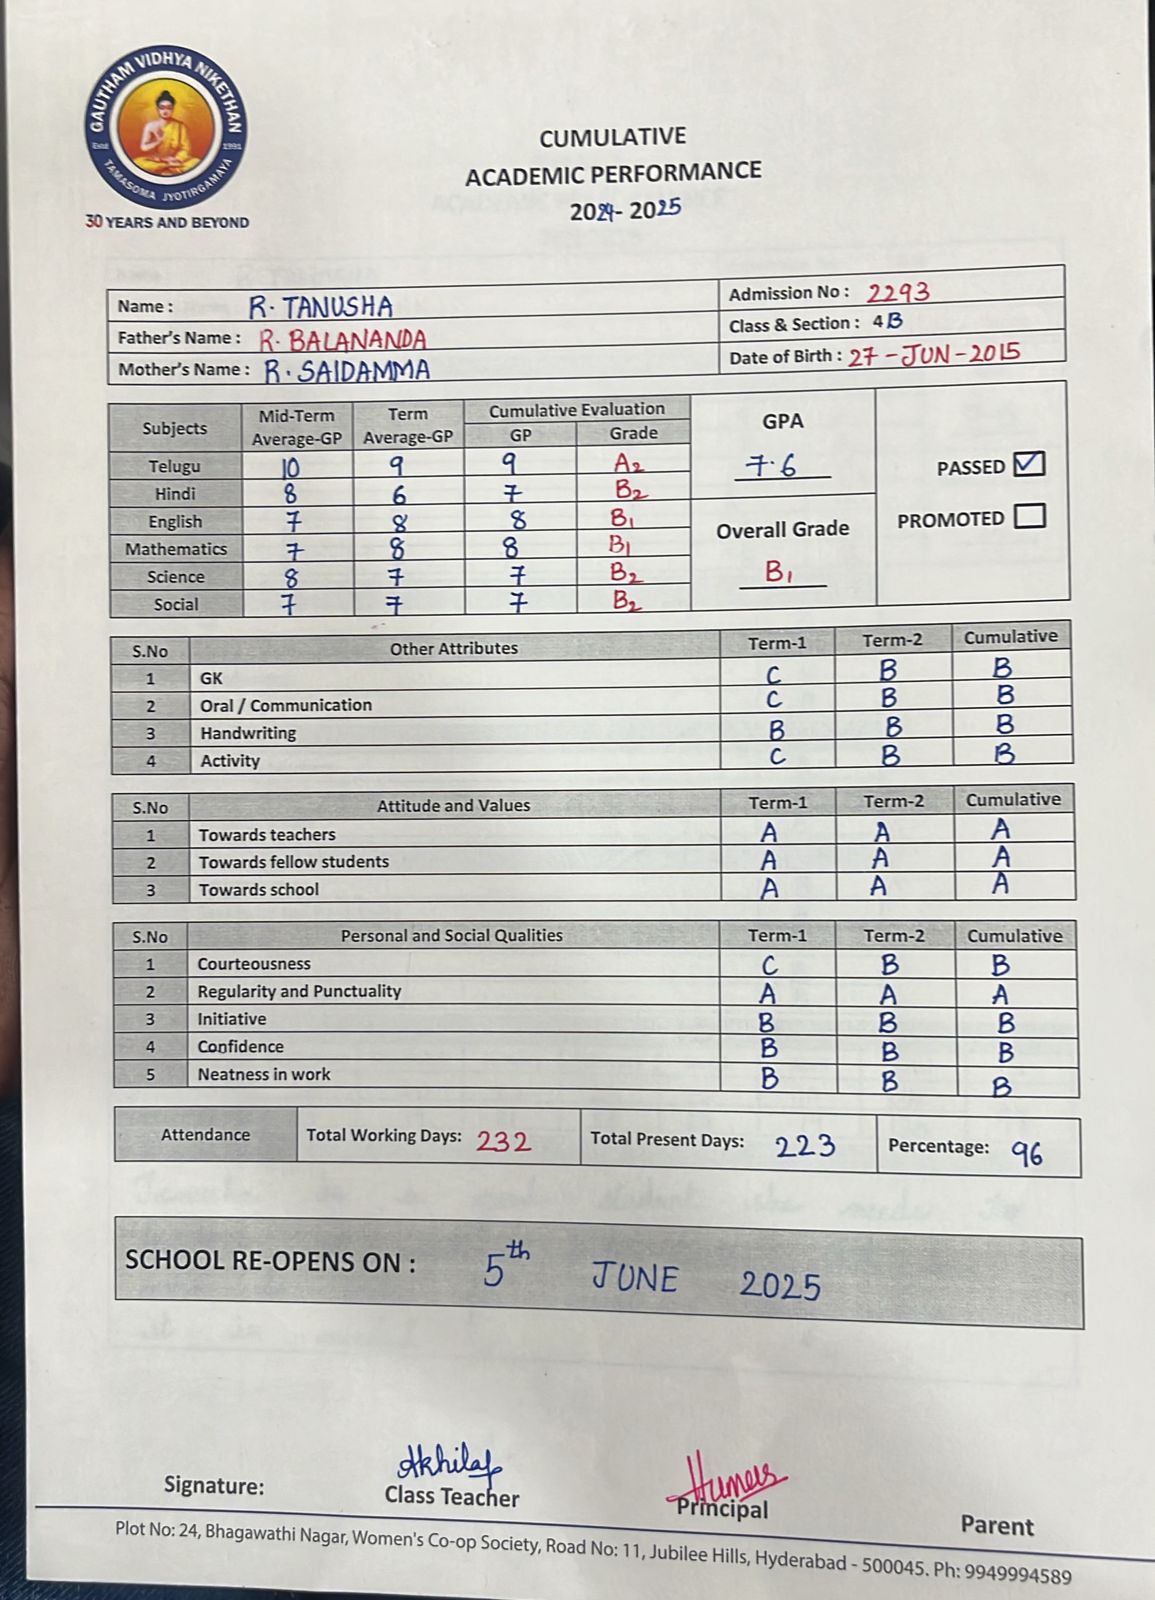 GAUTHAM VIDHYA NIKETHAN
Estd 1991
TAMASOMA JYOTIRGAMAYA
30 YEARS AND BEYOND
CUMULATIVE
ACADEMIC PERFORMANCE
2024- 2025
Name : R. TANUSHA Admission No : 2293
Father's Name : R. BALANANDA Class & Section : 4B
Mother's Name : R. SAIDAMMA Date of Birth : 27-JUN-2015
Subjects Mid-Term Average-GP Term Average-GP Cumulative Evaluation GP Grade
Telugu 10 9 9 A2
Hindi 8 6 7 B2
English 7 8 8 B1
Mathematics 7 8 8 B1
Science 8 7 7 B2
Social 7 7 7 B2
GPA
7.6
Overall Grade
B1
PASSED ✓
PROMOTED
S.No Other Attributes Term-1 Term-2 Cumulative
1 GK C B B
2 Oral / Communication C B B
3 Handwriting B B B
4 Activity C B B
S.No Attitude and Values Term-1 Term-2 Cumulative
1 Towards teachers A A A
2 Towards fellow students A A A
3 Towards school A A A
S.No Personal and Social Qualities Term-1 Term-2 Cumulative
1 Courteousness C B B
2 Regularity and Punctuality A A A
3 Initiative B B B
4 Confidence B B B
5 Neatness in work B B B
Attendance Total Working Days: 232 Total Present Days: 223 Percentage: 96
SCHOOL RE-OPENS ON : 5th JUNE 2025
Signature: Class Teacher Principal Parent
Plot No: 24, Bhagawathi Nagar, Women's Co-op Society, Road No: 11, Jubilee Hills, Hyderabad - 500045. Ph: 9949994589